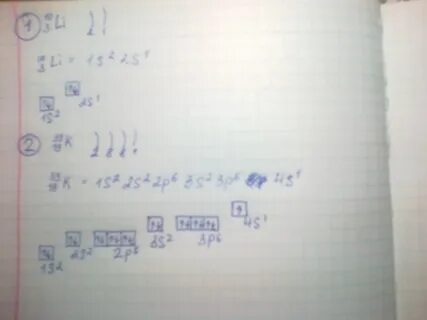 ① ₃Li 2 1
₃Li = 1s² 2s¹
↑↓ ↑↓
1s² 2s¹
② ³⁹₁₉K 2 8 8 1
³⁹₁₉K = 1s² 2s² 2p⁶ 3s² 3p⁶ 4s¹
↑↓ ↑↓ ↑↓ ↑↓ ↑↓ ↑↓ ↑↓ ↑↓ ↑↓ ↑
1s² 2s² 2p⁶ 3s² 3p⁶ 4s¹